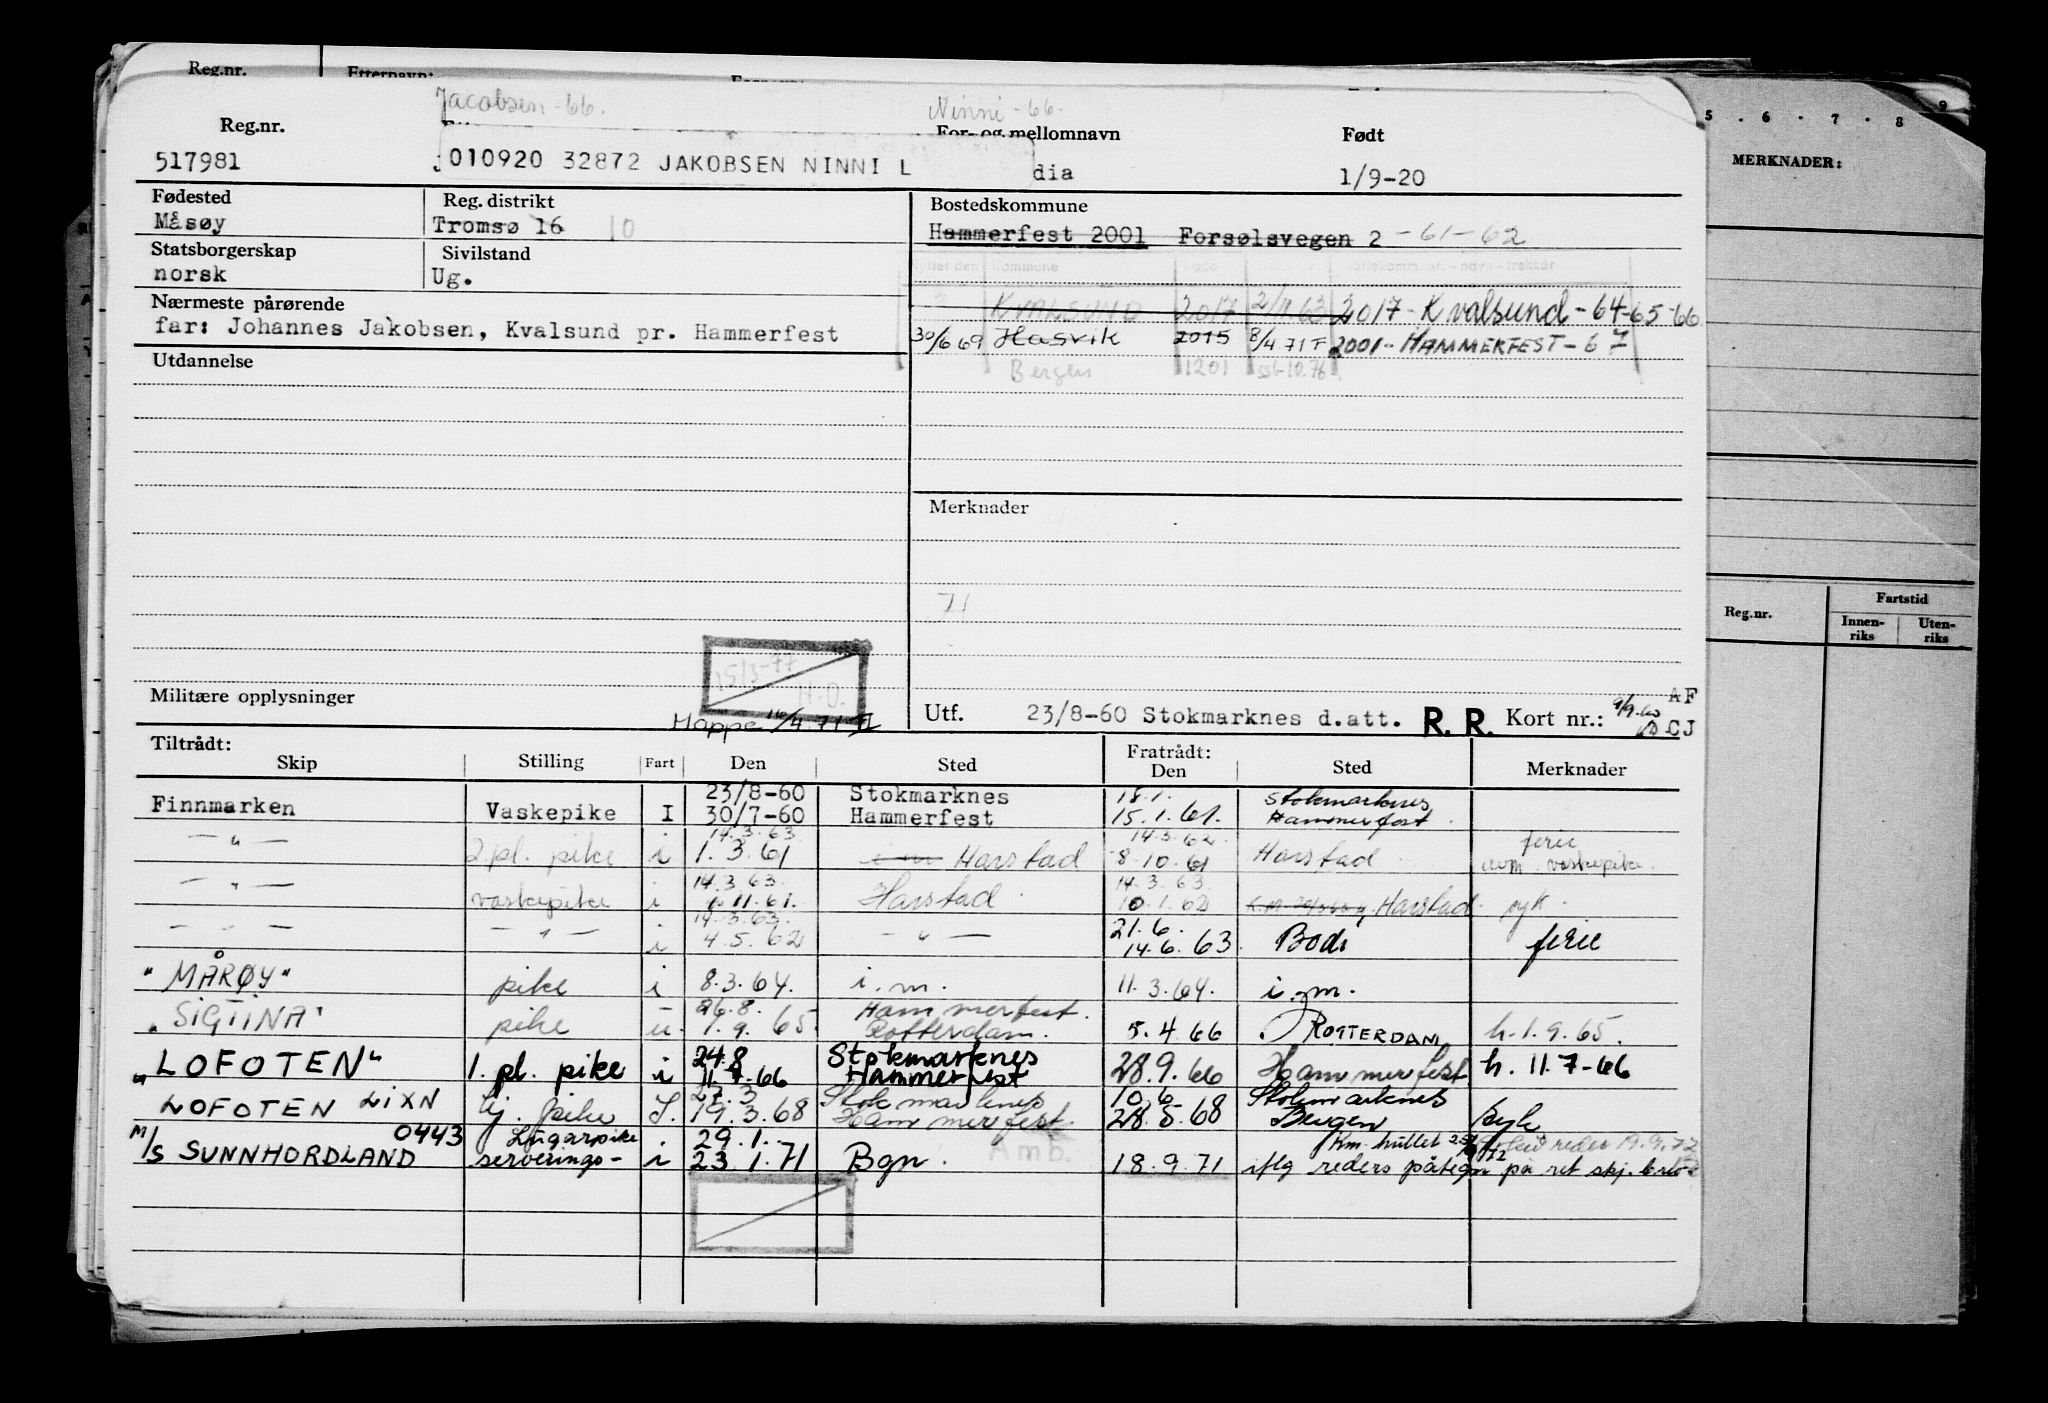 Reg.nr.
Jacobsen -66.
Ninni -66.
Reg.nr.
For- og mellomnavn
Født
517981
010920 32872 JAKOBSEN NINNI L
dia
1/9-20
Fødested
Reg. distrikt
Bostedskommune
Måsøy
Tromsø 16 10
Hammerfest 2001 Forsølsvegen 2 -61-62
Statsborgerskap
Sivilstand
norsk
Ug.
Kommune
Nærmeste pårørende
KVALSUND 2017 2/11 63 2017 - Kvalsund - 64-65-66
far: Johannes Jakobsen, Kvalsund pr. Hammerfest
30/6 69 Hasvik 2015 8/4 71 F 2001 - HAMMERFEST - 67
Utdannelse
Bergen 1201 10.76
Merknader
71
15/3-77
H.O.
Militære opplysninger
Mappe 16/4.71
Utf. 23/8-60 Stokmarknes d.att. R. R. Kort nr.: 9/9.60 AF
CJ
Tiltrådt:
Fratrådt:
Skip Stilling Fart Den Sted Den Sted Merknader
23/8-60 Stokmarknes 18.1. Stokmarknes
Finnmarken Vaskepike I 30/7-60 Hammerfest 15.1.61. Hammerfest.
14.3.63. 14.3.62. ferie
— " — 2.pl. pike i 1.3.61 Harstad 8.10.61 Harstad som vaskepike.
14.3.63. 14.3.63.
— " — vaskepike i 1.11.61. Harstad. 10.1.62 Harstad. syk.
14.3.63. 21.6.
— " — — " — i 4.5.62 — " — 14.6.63. Bodø ferie
"MÅRØY" pike i 8.3.64. i.m. 11.3.64. i.m.
26.8. Hammerfest.
"SIGTINA" pike u. 1.9.65. Rotterdam. 5.4.66 ROTTERDAM h.1.9.65.
24.8 Stokmarknes
"LOFOTEN" 1. pl. pike i 11.7.66 Hammerfest 28.9.66 Hammerfest h. 11.7-66
27.3 Stokmarknes 10.6. Stokmarknes
LOFOTEN LIXN pike I. 19.3.68 Hammerfest 28.5.68 Bergen
0443 Lugarpike 29.1. Km. hullet reder 19.9.72
M/S SUNNHORDLAND serverings- i 23.1.71 Bgn. Amb. 18.9.71 iflg reders påtegn på ret skj.
5 . 6 . 7 . 8 9
MERKNADER:
Reg.nr.
Fartstid
Innen-
riks
Uten-
riks